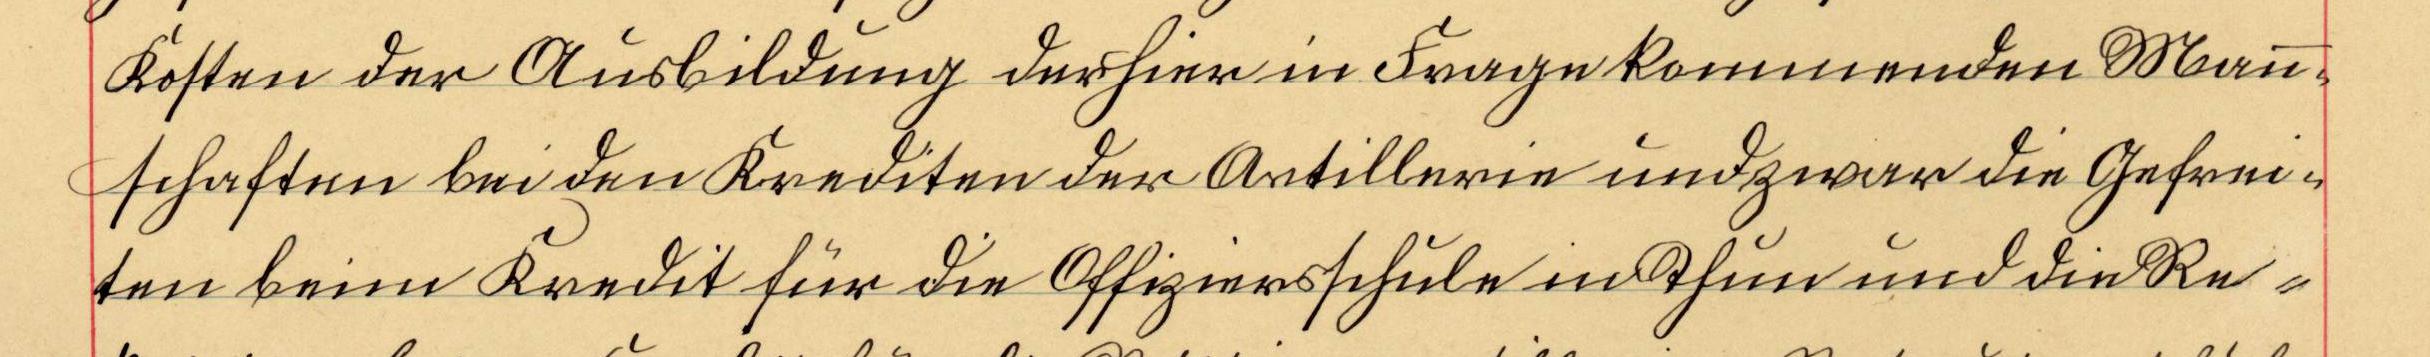 Kosten der Ausbildung der hier in Frage kommenden Man̅-
schaften bei den Krediten der Artillerie und zwar die Gefrei-
ten beim Kredit für die Offiziersschule in Thun und die Re-